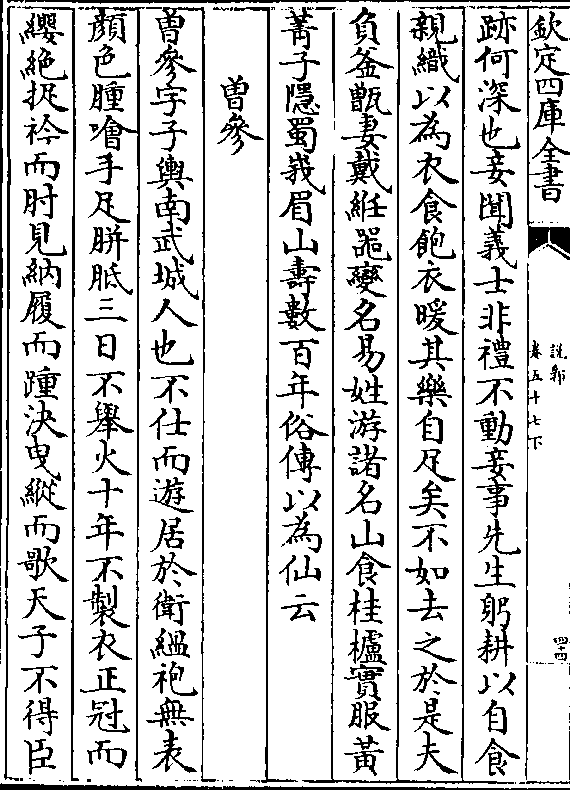 欽定四庫全書
說郛
卷五十七下
四十四
跡何深也妾聞義士非禮不動妾事先生躬耕以自食
親織以為衣食飽衣暖其樂自足矣不如去之於是夫
負釜甑妻戴絍器變名易姓游諸名山食桂櫨實服黃
菁子隱蜀峩眉山壽數百年俗傳以為仙云
曽參
曽參字子輿南武城人也不仕而遊居於衛縕袍無表
顔色腫噲手足胼胝三日不舉火十年不製衣正冠而
纓絶捉衿而肘見納履而踵決曵縰而歌天子不得臣